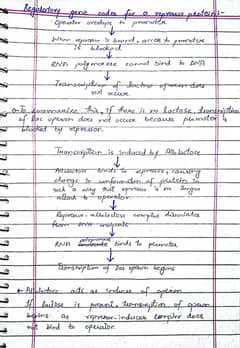 Regulatory gene codes for a repressor protein:-
Operator overlaps to promoter
When repressor is bound, access to promoter
is blocked
RNA polymerase cannot bind to DNA
Transcription of lactose operon does
not occur.
To summarise this, if there is no lactose, transcription
of lac operon does not occur because promoter is
blocked by repressor.
Transcription is induced by Allolactose
Allolactose binds to repressor, causing
change in conformation of protein in
such a way that repressor is no longer
attach to operator
Repressor-allolactose complex dissociates
from DNA
RNA polymerase binds to promoter
Transcription of lac operon begins
Allolactose acts as inducer of operon
If lactose is present, transcription of operon
begins as repressor-inducer complex does
not bind to operator